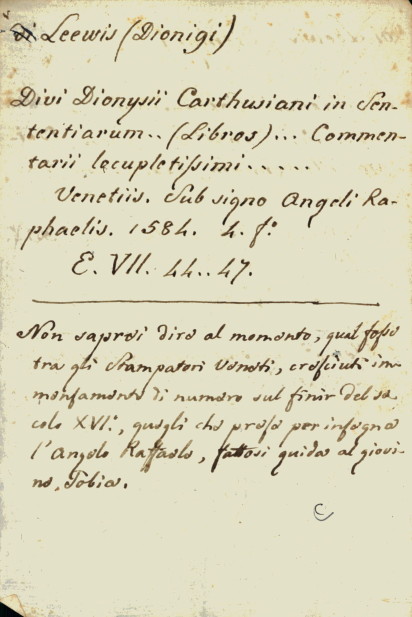 di Leewis (Dionigi)
Divi Dionysii Carthusiani in Sen-
tentiarum.. (Libros)... Commen-
tarii locupletissimi.....
Venetiis. Sub signo Angeli Ra-
phaelis. 1584. 4. f.o
E. VII. 44..47.
Non saprei dire al momento, qual fosse
tra gli Stampatori Veneti, cresciuti im-
mensamente di numero sul finir del se
colo XVI.o, quegli che prese per insegna
l'Angelo Raffaele, fattosi guida al giovi-
ne, Tobia.
C